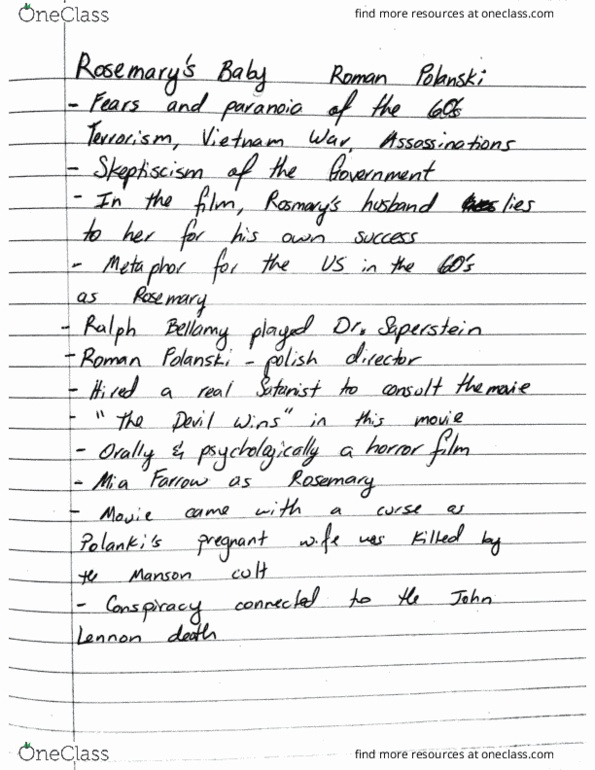 OneClass
find more resources at oneclass.com
Rosemary's Baby Roman Polanski
- Fears and paranoia of the 60s
Terrorism, Vietnam War, Assassinations
- Skeptiscism of the Government
- In the film, Rosmary's husband lies
to her for his own success
- Metaphor for the US in the 60's
as Rosemary
- Ralph Bellamy played Dr. Saperstein
- Roman Polanski - polish director
- Hired a real Satanist to consult the movie
- "The Devil Wins" in this movie
- Orally & psychologically a horror film
- Mia Farrow as Rosemary
- Movie came with a curse as
Polanki's pregnant wife was killed by
the Manson cult
- Conspiracy connected to the John
Lennon death
OneClass
find more resources at oneclass.com